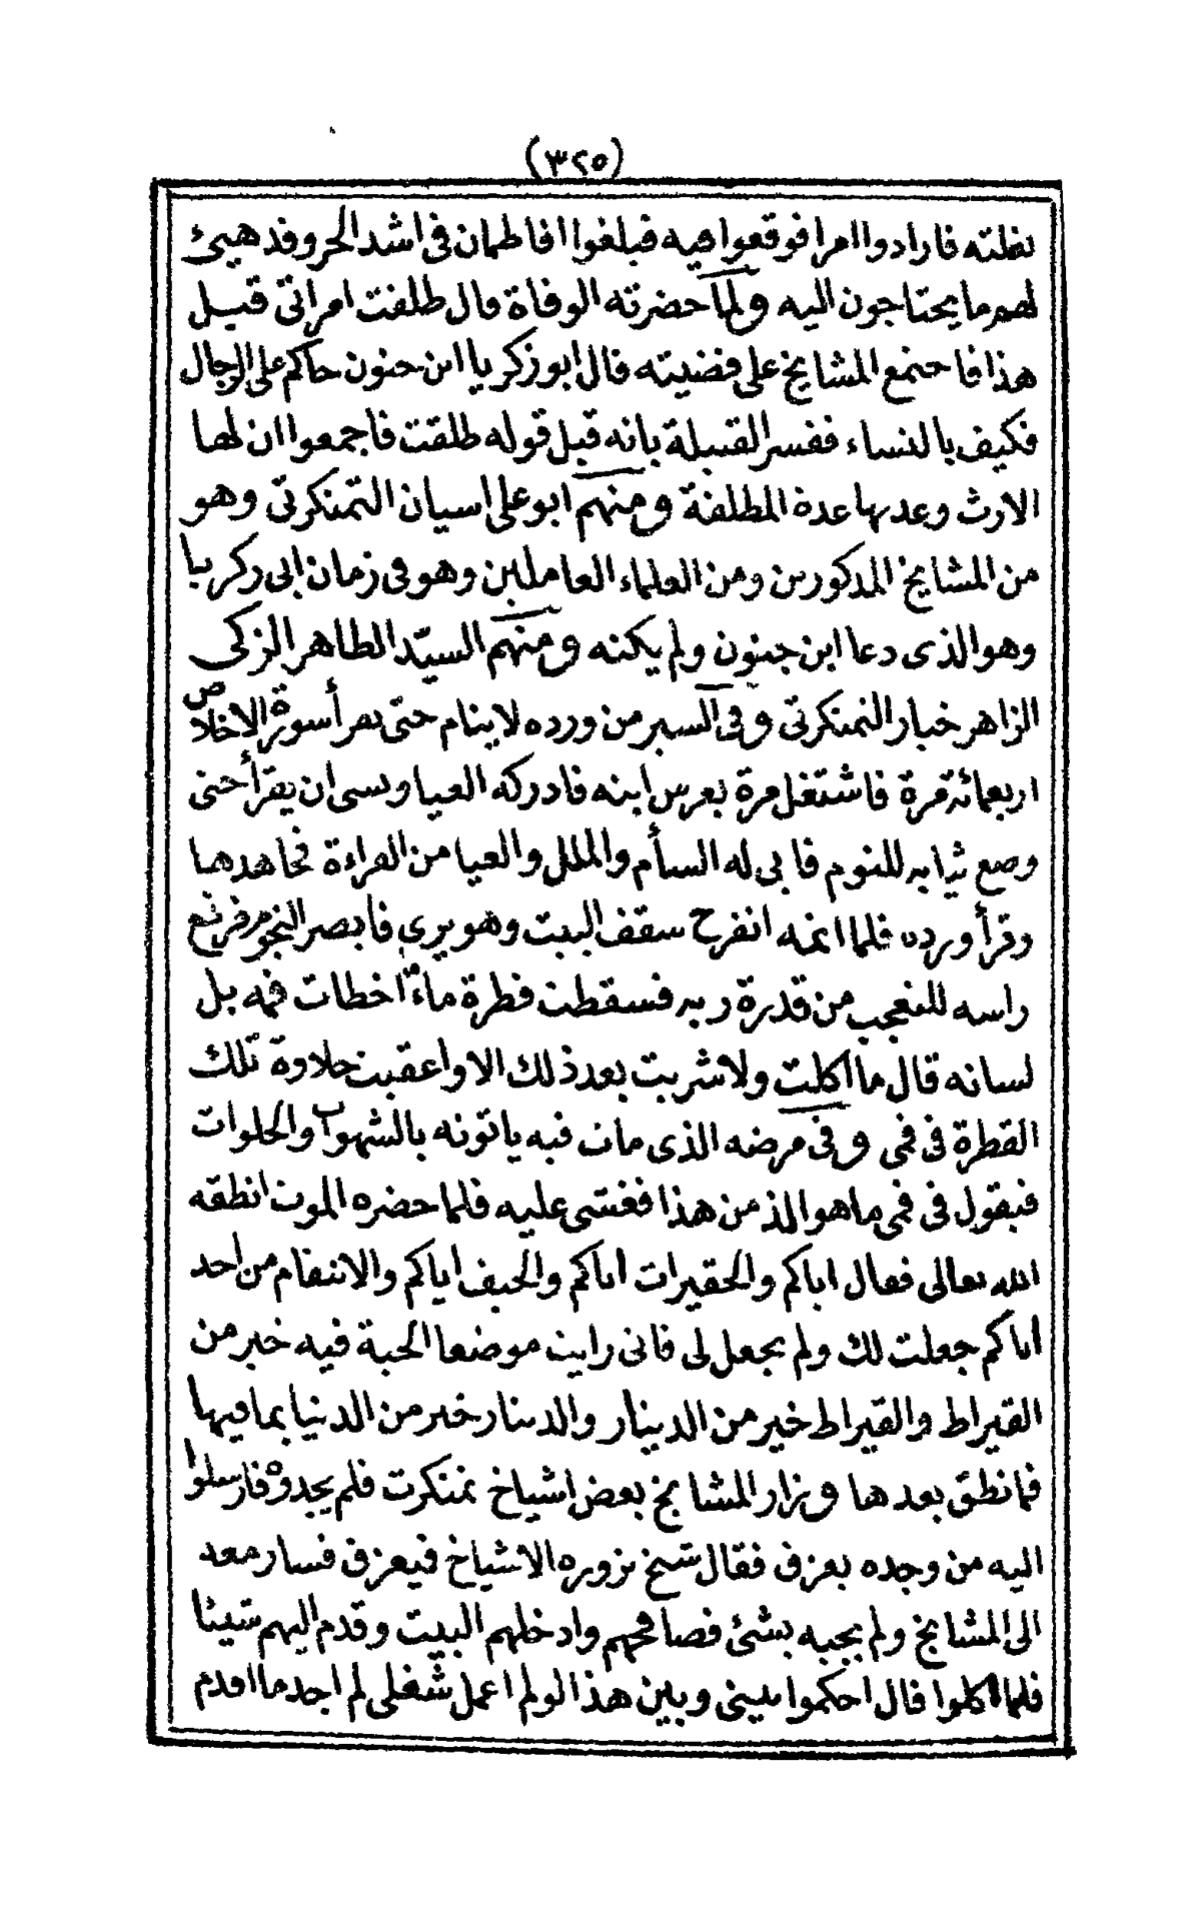 (٣٢٥)
نظلته فارادوا امرا فوقعوا فيه فبلغوا افاطمان فى اشد الحر وقد هيئ
لهم ما يحتاجون اليه ولما حضرته الوفاة قال طلقت امراتى قبل
هذا فاجتمع المشايخ على قضيته فقال ابو زكريا ابن جنون حاكم على الرجال
فكيف بالنساء ففسر القبلة بانه قبل قوله طلقت فاجمعوا ان لها
الارث وعدتها عدة المطلقة ومنهم ابو على اسيان التمنكرتى وهو
من المشايخ المذكورين ومن العلماء العاملين وهو فى زمان ابى زكريا
وهو الذى دعا ابن جنون ولم يكنه ومنهم السيّد الطاهر الزكى
الزاهر خيار التمنكرتى وفى السير من ورده لا ينام حتى يقرأ سورة الاخلاص
اربعمائة مرة فاشتغل مرة بعرس ابنه فادركه العيا ونسى ان يقرأ حتى
وضع ثيابه للنوم فابى له السأم والملل والعيا من القراءة فجاهدهما
وقرأ ورده فلما اتمه انفرج سقف البيت وهو يرى فابصر النجوم فرفع
راسه للتعجب من قدرة ربه فسقطت قطرة ماء اخطات فمه بل
لسانه قال ما اكلت ولا شربت بعد ذلك الا واعقبت حلاوة تلك
القطرة فى فمى وفى مرضه الذى مات فيه ياتونه بالشهوات والحلوات
فيقول فى فمى ما هو الذ من هذا فغشى عليه فلما حضره الموت انطقه
الله تعالى فقال اياكم والحقيرات اياكم والحيف اياكم والانتقام من احد
اياكم جعلت لك ولم يجعل لى فانى رايت موضعا الحبة فيه خير من
القيراط والقيراط خير من الدينار والدينار خير من الدنيا بما فيها
فما نطق بعدها وزار المشايخ بعض اشياخ تمنكرت فلم يجدوه فارسلوا
اليه من وجده يعزق فقال شيخ تزوره الاشياخ فيعزق فسار معه
الى المشايخ ولم يجبه بشئ فصافحهم وادخلهم البيت وقدم اليهم شيئا
فلما اكلوا قال احكموا بينى وبين هذا لو لم اعمل شغلى لم اجد ما اقدم